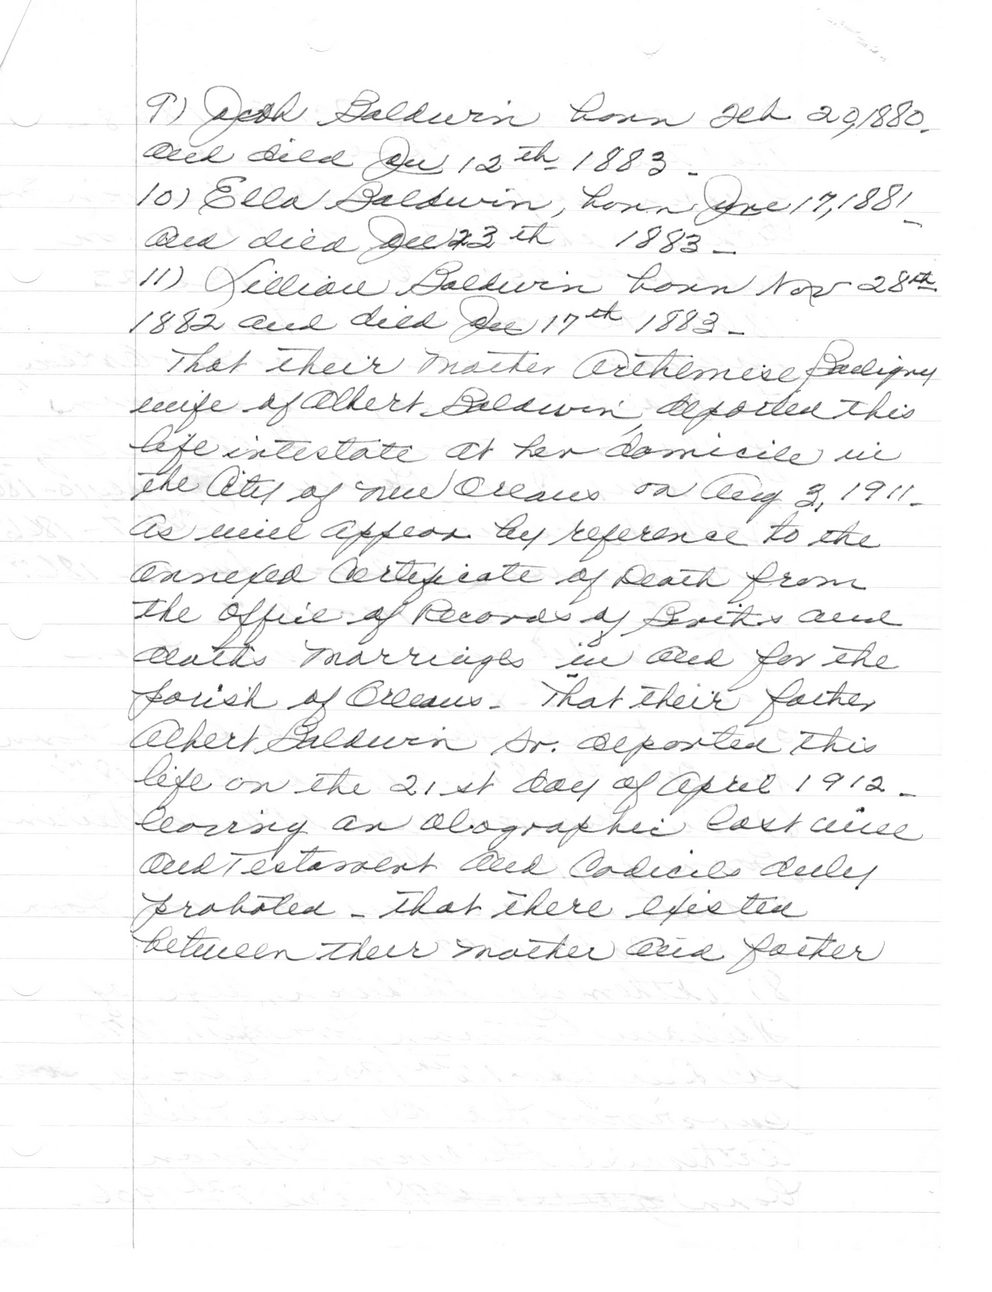 9) Jacob Baldwin born Feb 29, 1880-
and died Jan 12th 1883 -
10) Ella Baldwin, born June 17, 1881 -
and died Jan 23th 1883 -
11) Lillian Baldwin born Nov 28th
1882 and died Jan 17th 1883 -
That their mother Arthemise
wife of Albert Baldwin, departed this
life intestate at her domicile in
the City of New Orleans on Aug 3, 1911 -
As will appear by reference to the
annexed Certificate of Death from
the Office of Records of Births and
deaths Marriages in and for the
parish of Orleans - That their father
Albert Baldwin Sr. departed this
life on the 21st day of April 1912 -
leaving an olographic last will
and Testament and Codicils duly
probated - that there existed
between their mother and father